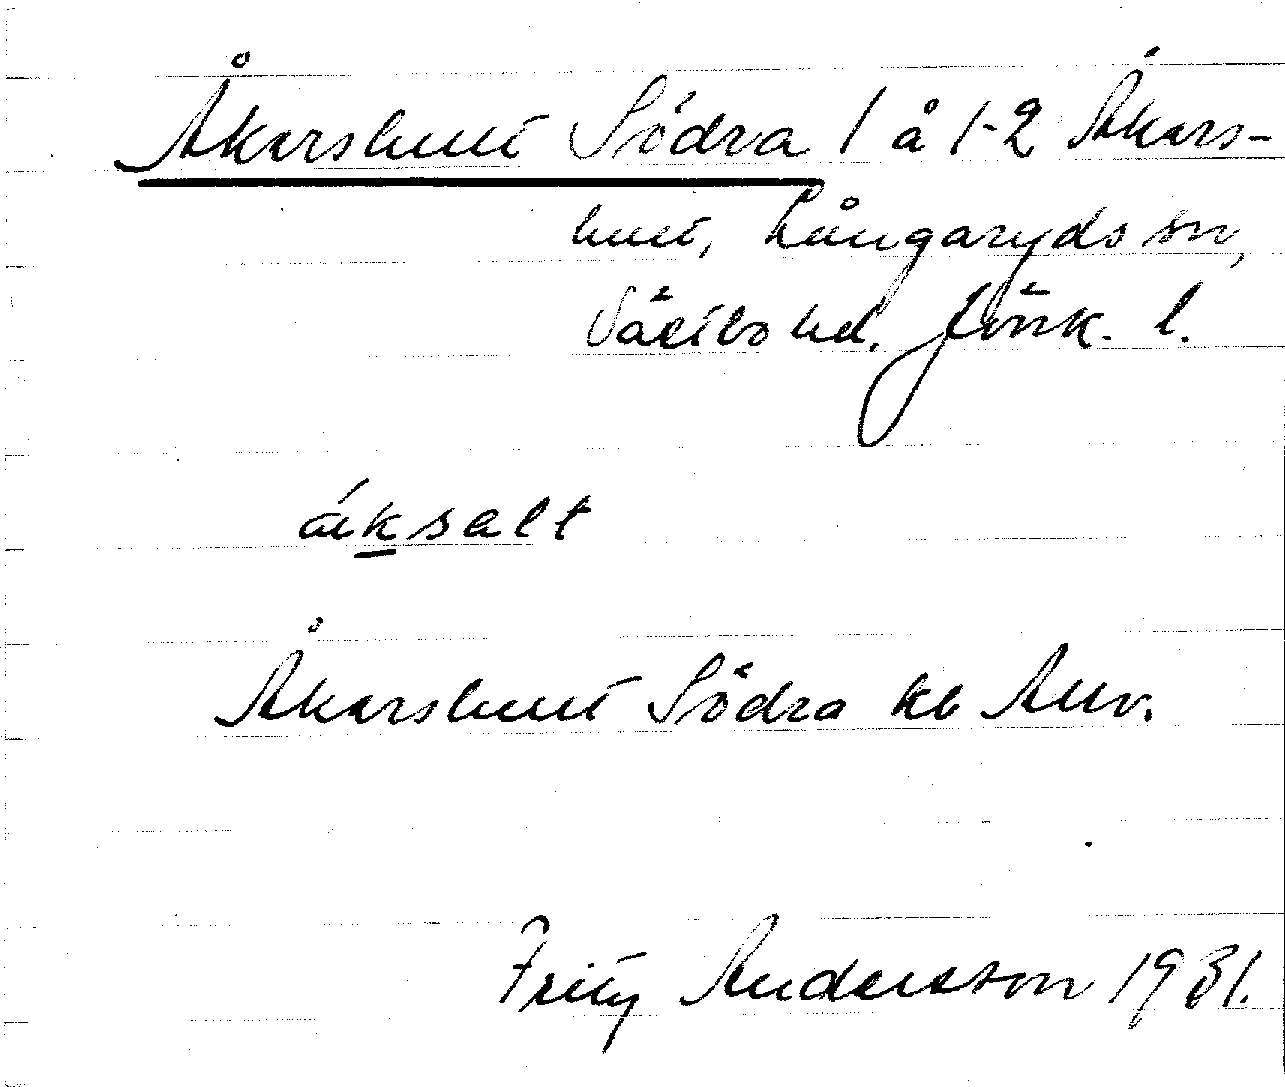 Åkarshult Södra 1 å 1-2 Åkars-
hult, Långaryds sn,
Västbo hd. Jönk. l.
áksalt
Åkarshult Södra kb Allv.
Fritz Andersson 1931.